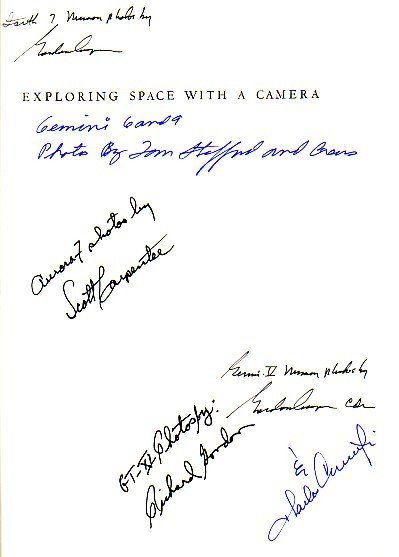 Faith 7 Mission photos by
Gordon Cooper
EXPLORING SPACE WITH A CAMERA
Gemini 6 and 9
Photo By Tom Stafford and Crews
Aurora 7 photos by
Scott Carpenter
Gemini V Mission photos by
Gordon Cooper CDR
GT-XI Photos by:
Richard Gordon
&